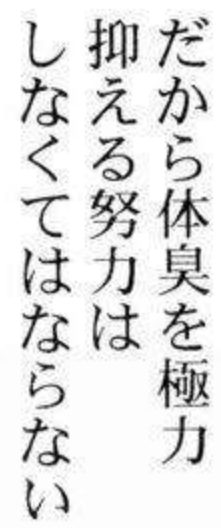 だから体臭を極力
抑える努力は
しなくてはならない